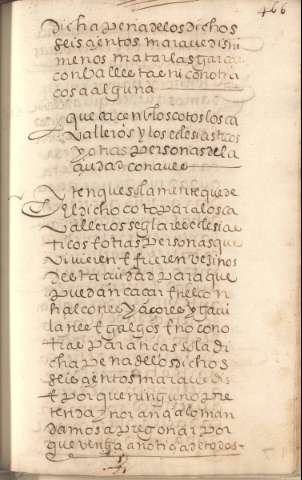 466
dicha pena de los dichos
seis çientos maravedis ni
menos matar las garças
con ballesta e ni con otra
cosa alguna
que açen los cotos los ca
valleros y los eclesiasticos
y otras personas de la
çiudad con aves
Yten que solamente quede
el dicho coto para los ca
valleros seglares e eclesias
ticos e otras personas que
vivieren e fueren vezinos
desta çiudad para que
puedan caçar en el con
halcones y açores y gavi
lanes e galgos e no con o
tras paranças so la di
cha pena de los dichos
seis çientos maravedis
e porque ninguno pre
tenda ynorançia lo man
damos apregonar por
que venga a notiçia de todos